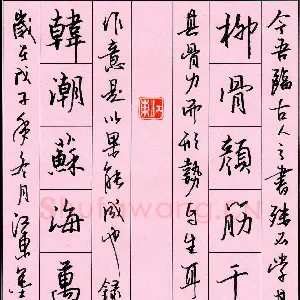 今吾臨古人之書殊不學其
柳骨顏筋千
其骨力而形勢自生耳
江東
作意是以果能成也錄
韓潮蘇海萬
歲在戊子年冬月江東
Shufawang.CN